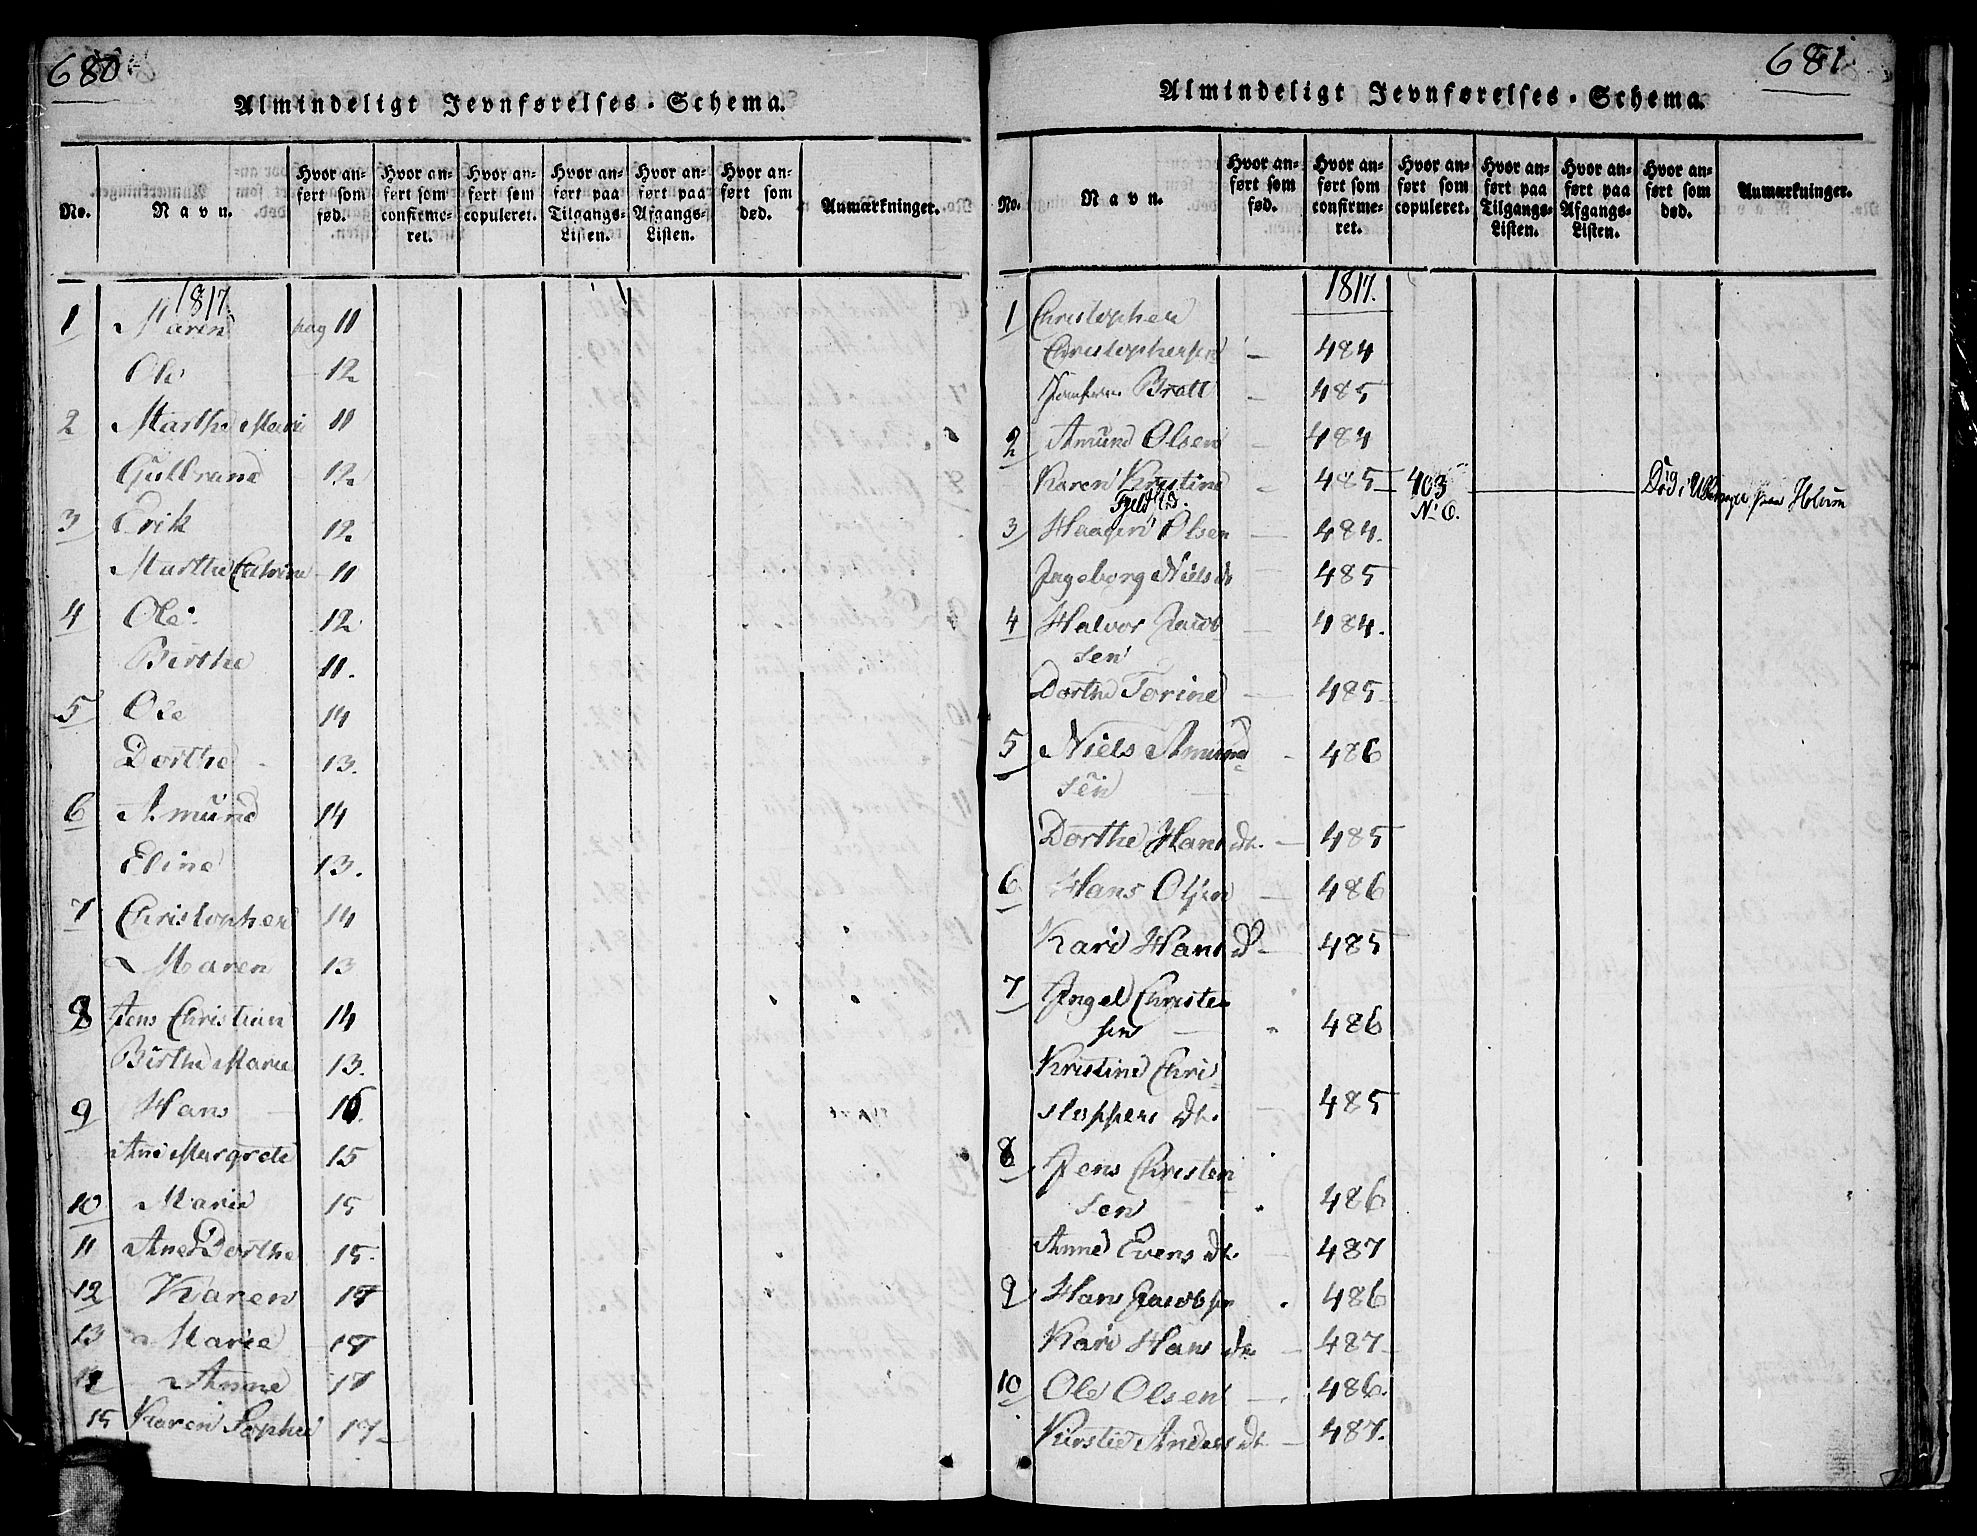 680
Almindeligt Jevnførelses-Schema.
No.
Navn.
Hvor anført som fød.
Hvor anført som confirmeret.
Hvor anført som copuleret.
Hvor anført paa Tilgangs-Listen.
Hvor anført paa Afgangs-Listen.
Hvor anført som død.
Anmærkninger.
1817.
1 Maren pag 11
Ole 12
2 Marthe Marie 11
Gulbrand 12
3 Erik 12
Marthe Cathrine 11
4 Ole 12
Birthe 11.
5 Ole 14
Dorthe 13.
6 Amund 14
Eline 13.
7 Christopher 14
Maren 13
8 Jens Christian 14
Birthe Marie 13.
9 Hans 16.
Ane Margrete 15
10 Marie 15
11 Ane Dorthe 15.
12 Karen 17
13 Marie 17
14 Anne 17
15 Karen Sophie 17
681.
Almindeligt Jevnførelses-Schema.
No.
Navn.
Hvor anført som fød.
Hvor anført som confirmeret.
Hvor anført som copuleret.
Hvor anført paa Tilgangs-Listen.
Hvor anført paa Afgangs-Listen.
Hvor anført som død.
Anmærkninger.
1817.
1 Christopher
Christophersen - 484
Bratt - 485
2 Amund Olsen - 484
Karen Kristine - 485 - 403 Død i
N: 6.
3 Haagen Olsen - 484.
Ingeborg Niels d. 485
4 Halvor Jacob - 484.
sen
Dorthe Torine - 485
5 Niels Amund - 486
sen
Dorthe Hans dt. - 485
6 Hans Olsen - 486
Kari Hans d - 485
7 Engel Christen
sen - 486
Kristine Chri-
stophers dt. 485
8 Jens Christen
sen 486
Anne Evens dt. 487
9 Hans Jacobsen 486
Kari Hans dr - 487
10 Ole Olsen 486.
Kirstie Anders dt - 487.